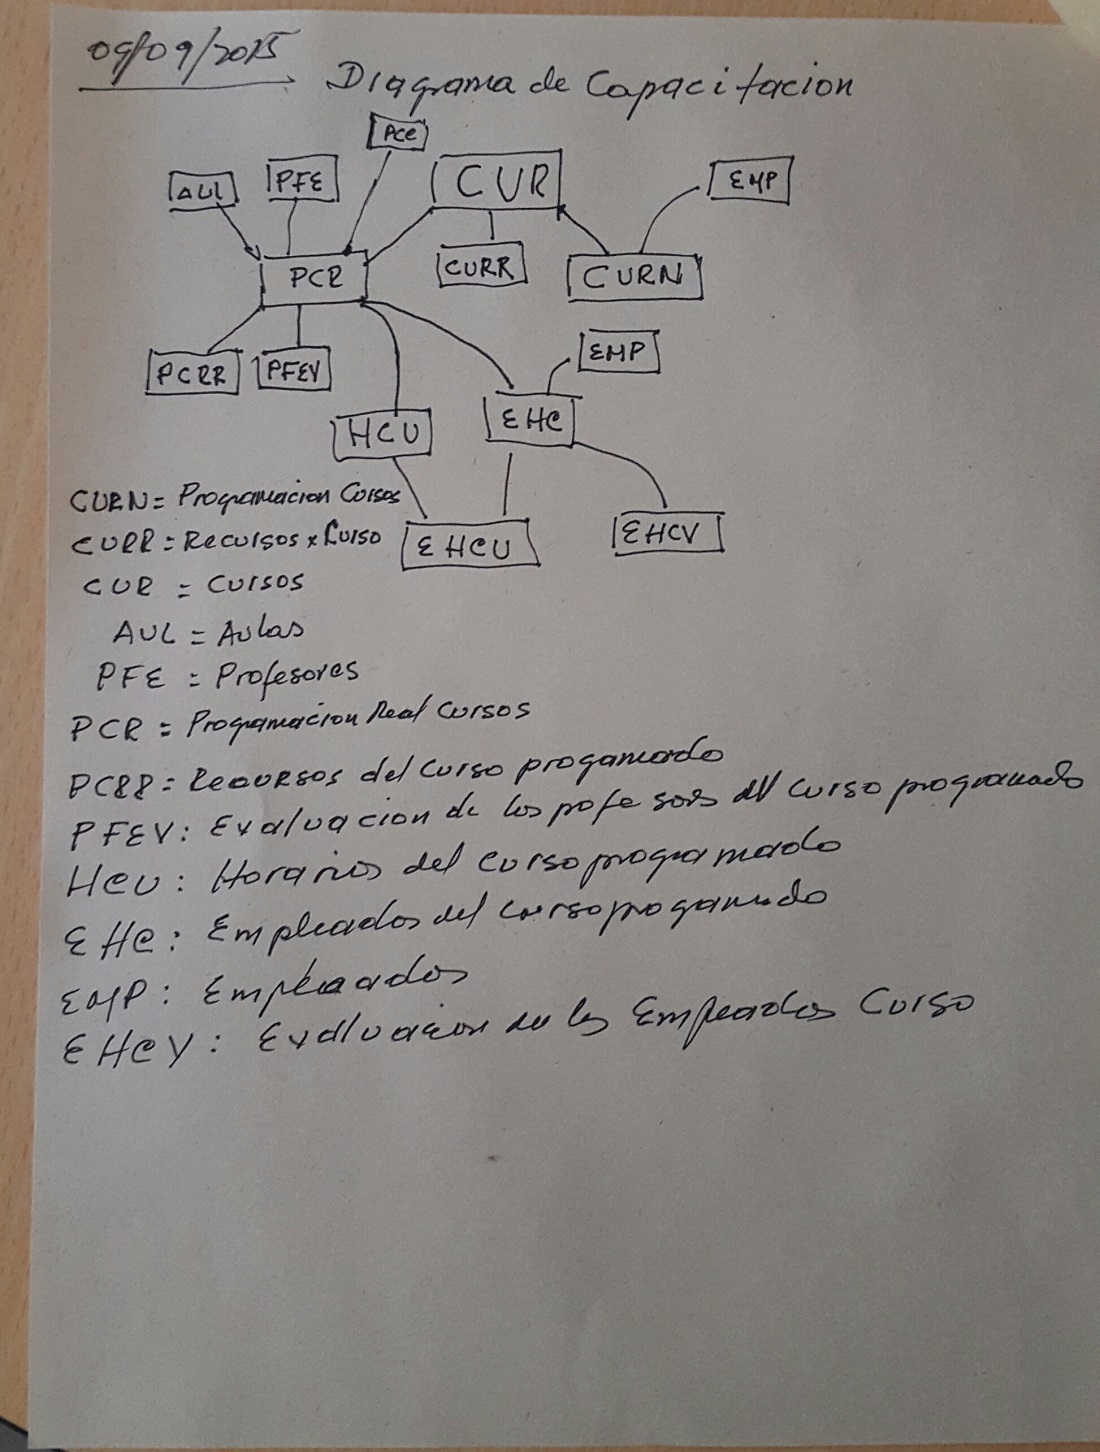 09/09/2015
Diagrama de Capacitacion
PCE
AUL PFE CUR EMP
PCR CURR CURN
PCRR PFEV EMP
HCU EHC
CURN = Programacion Cursos
CURR = Recursos x Curso EHCU EHCV
CUR = Cursos
AUL = Aulas
PFE = Profesores
PCR = Programacion Real Cursos
PCRR = Recursos del curso progamado
PFEV: Evaluacion de los pofesores del curso programado
HCU: Horarios del curso programado
EHC: Empleados del curso progamado
EMP: Empleados
EHCV: Evaluacion de los Empleados Curso